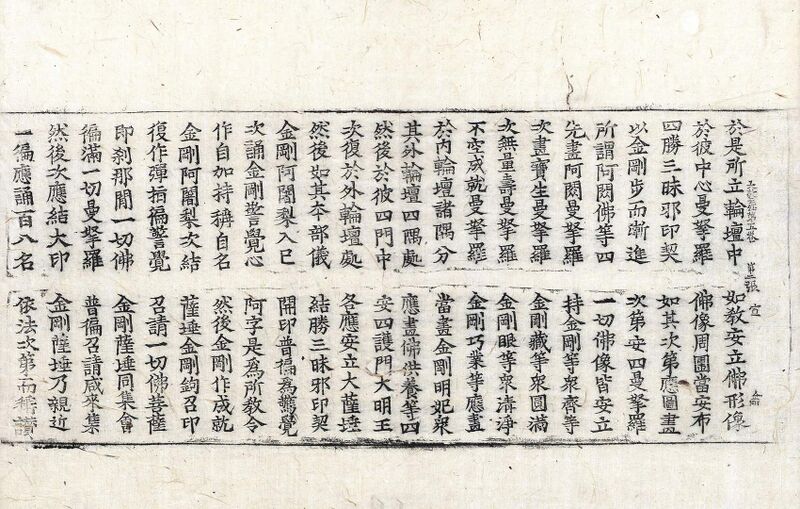 於是所立輪壇中 如教安立佛形像
於彼中心曼拏羅 佛像周圍當安布
四勝三昧邪印契 如其次第應圖畫
以金剛步而漸進 次第安四曼拏羅
所謂阿閦佛等四 一切佛像皆安立
先畫阿閦曼拏羅 持金剛等衆齊等
次畫寶生曼拏羅 金剛藏等衆圓滿
次無量壽曼拏羅 金剛眼等衆清淨
不空成就曼拏羅 金剛巧業等應畫
於內輪壇諸隅分 當畫金剛明妃衆
其外輪壇四隅處 應畫佛供養等四
然後於彼四門中 安四護門大明王
次復於外輪壇處 各應安立大薩埵
然後如其本部儀 結勝三昧邪印契
金剛阿闍梨入已 開印普徧為驚覺
次誦金剛警覺心 阿字是為所教令
作自加持稱自名 然後金剛作成就
金剛阿闍梨次結 薩埵金剛鉤召印
復作彈指徧警覺 召請一切佛菩薩
即剎那間一切佛 金剛薩埵同集會
徧滿一切曼拏羅 普徧召請咸來集
然後次應結大印 金剛薩埵乃親近
一徧應誦百八名 依法次第而稱讚